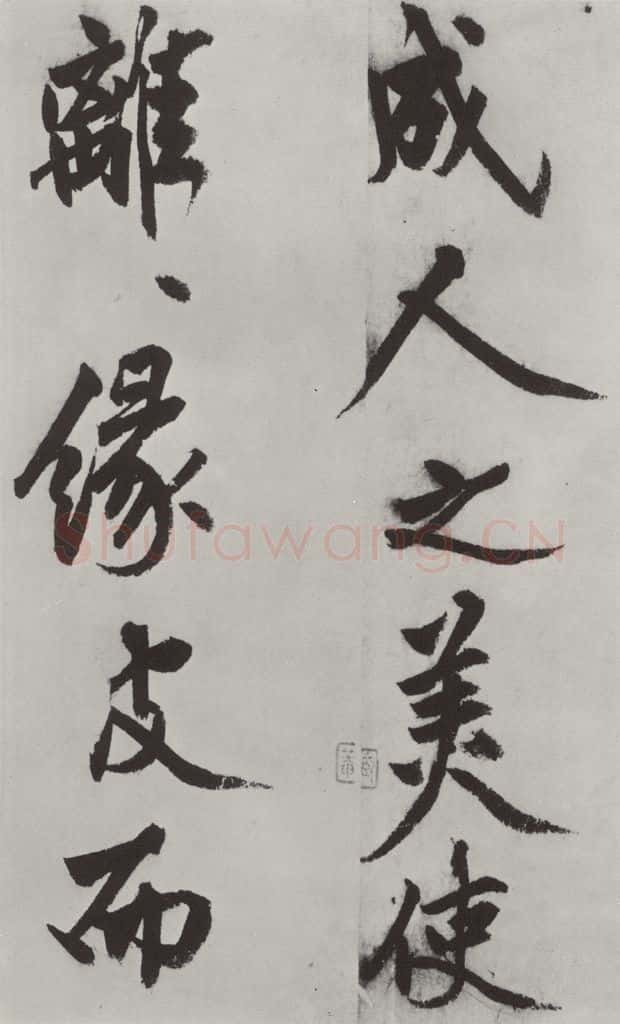 成人之美使
離〻緣皮而
Shufawang.CN